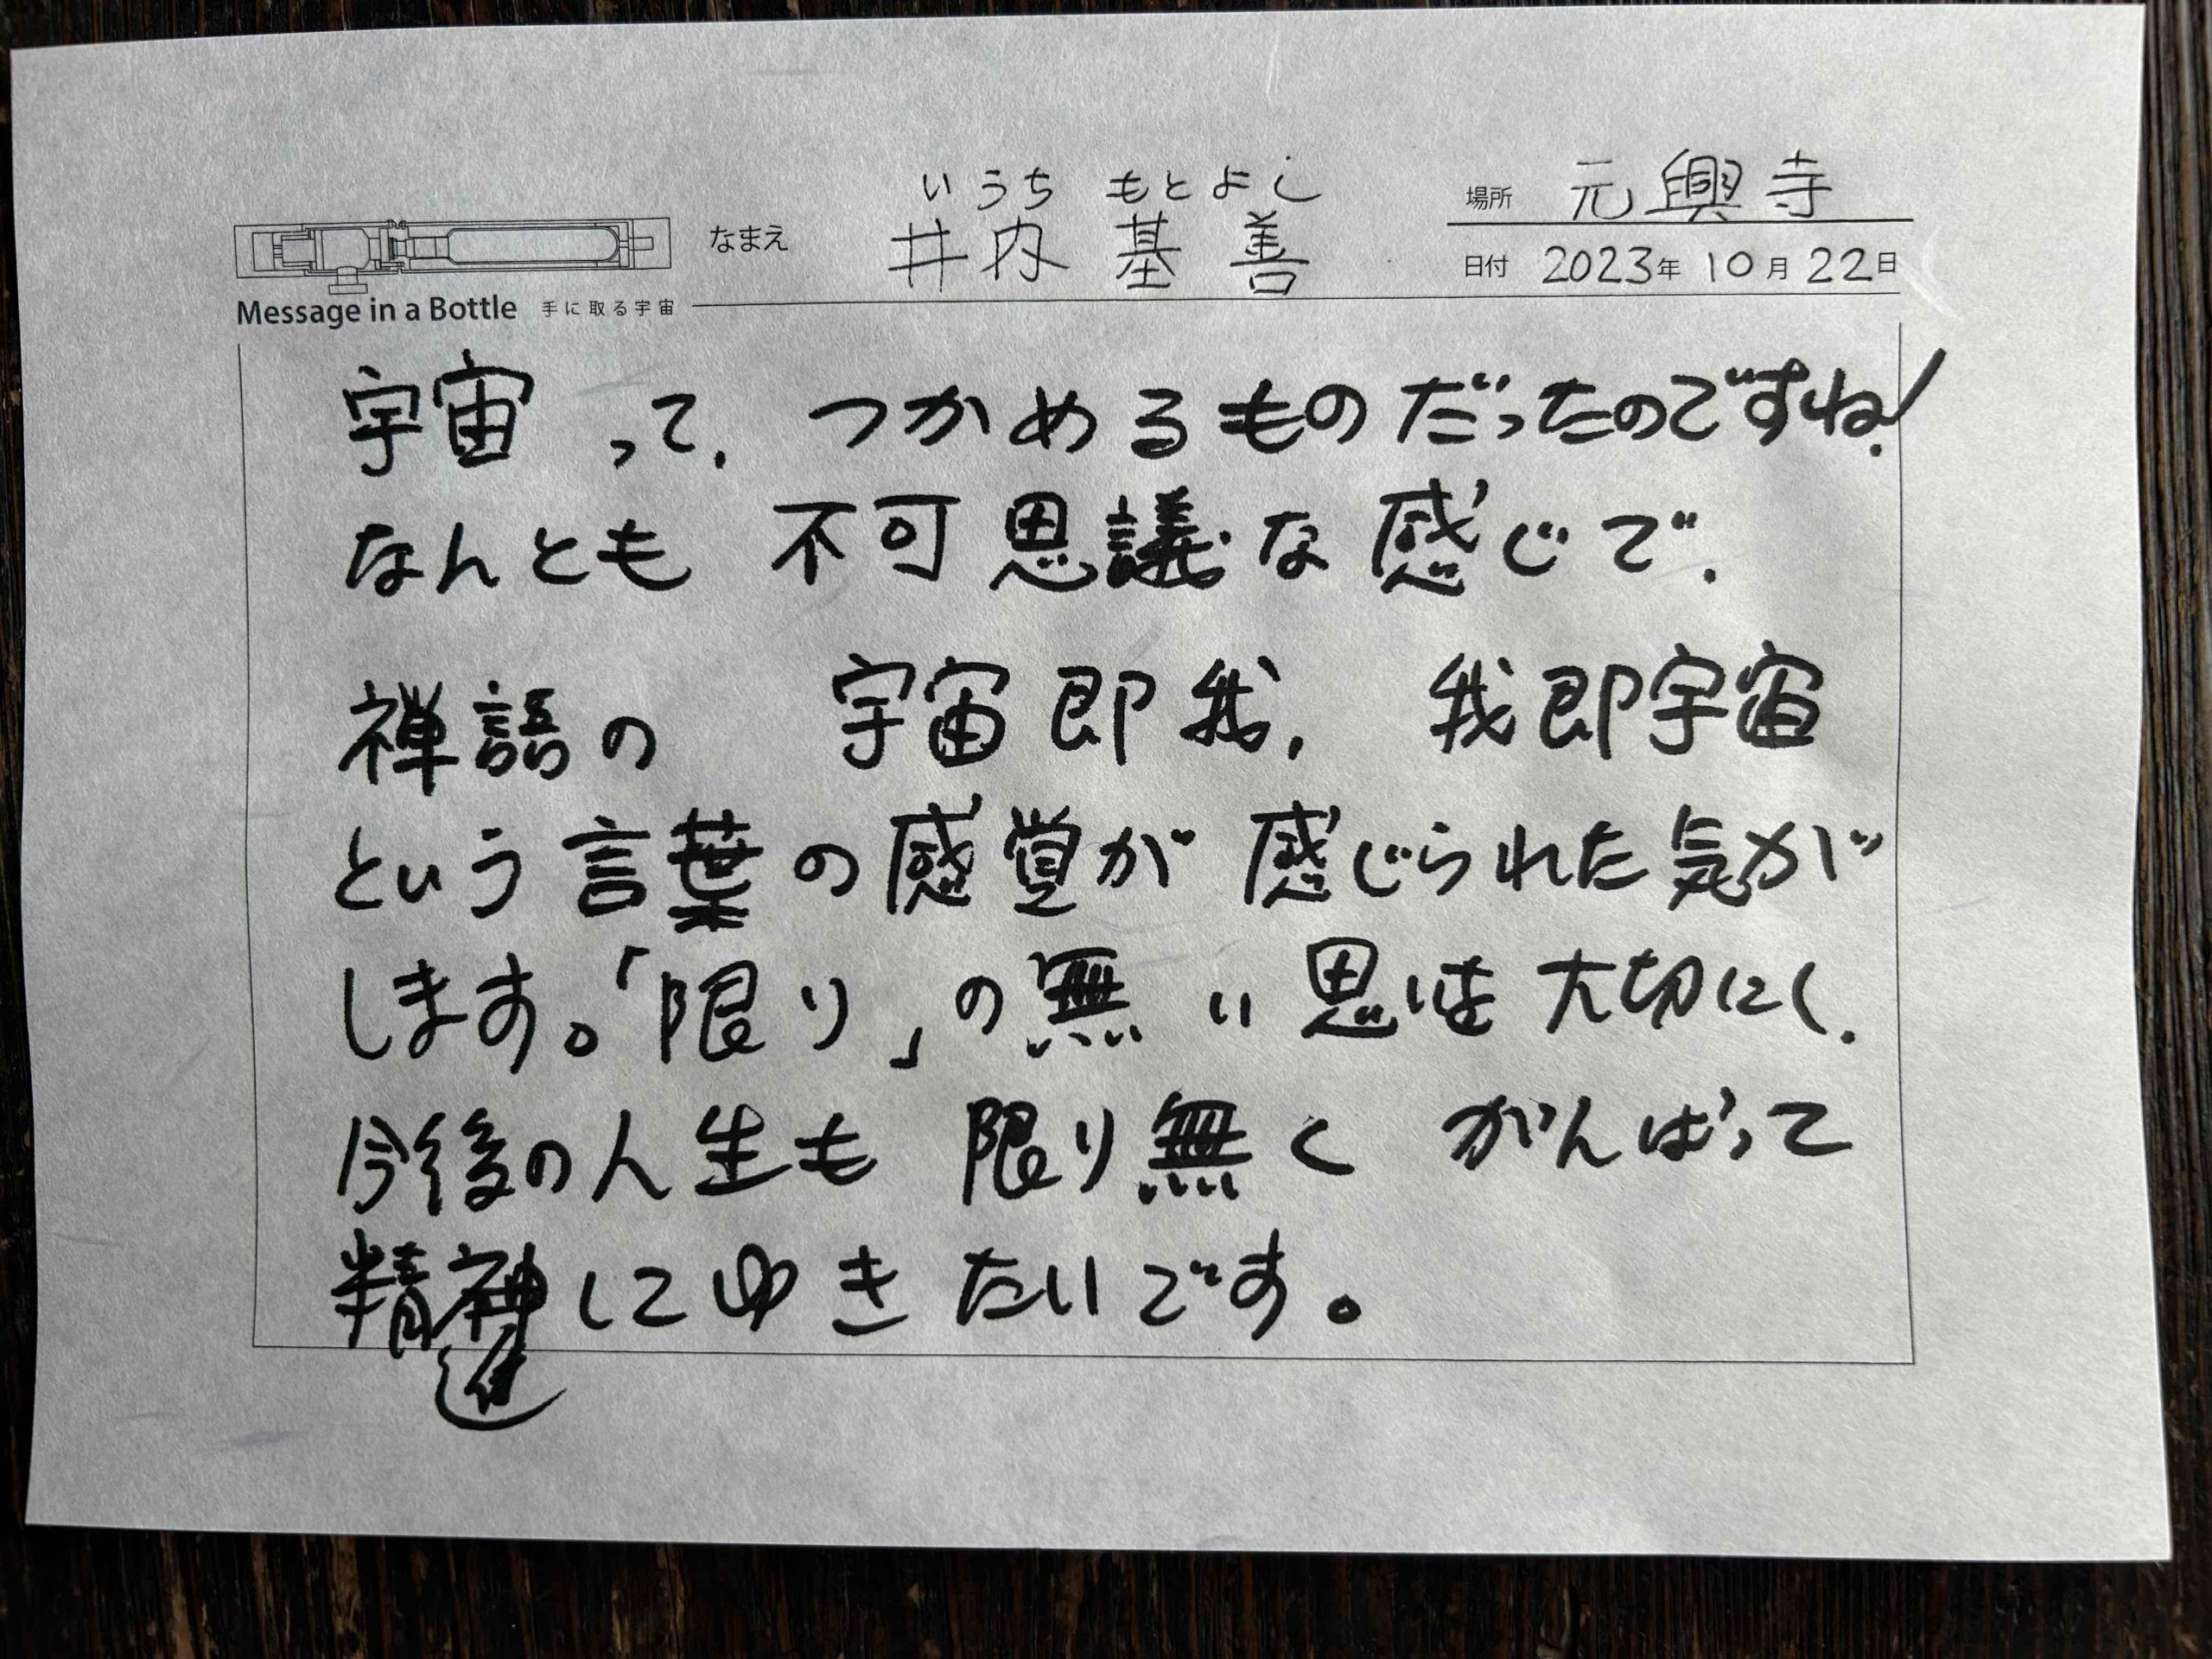 いうち もとよし
なまえ 井内 基善
場所 元興寺
日付 2023年 10月 22日
Message in a Bottle 手に取る宇宙
宇宙って、つかめるものだったのですね!
なんとも 不可思議な感じで、
禅語の 宇宙即我、 我即宇宙
という言葉の感覚が 感じられた気が
します。「限り」の無い思いを大切にし、
今後の人生も 限り無く がんばって
精進してゆきたいです。